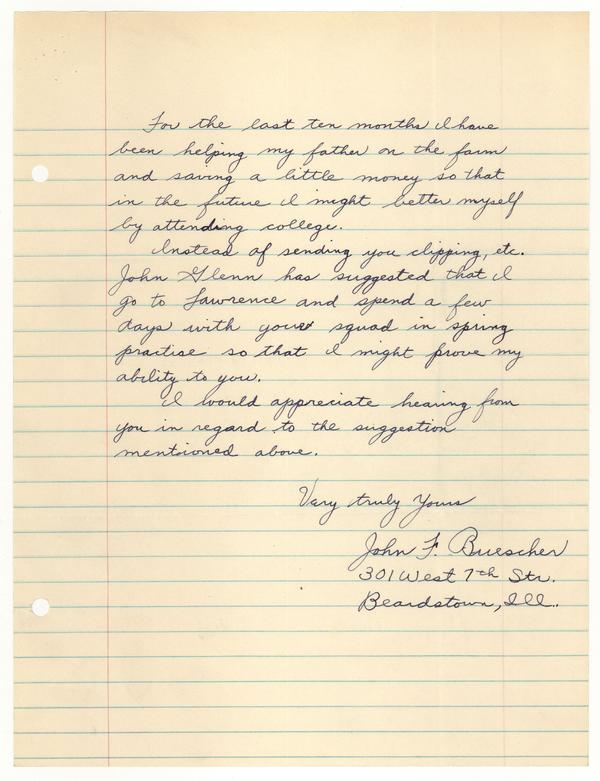 For the last ten months I have
been helping my father on the farm
and saving a little money so that
in the future I might better myself
by attending college.
Instead of sending you clipping, etc.
John Glenn has suggested that I
go to Lawrence and spend a few
days with your squad in spring
practise so that I might prove my
ability to you.
I would appreciate hearing from
you in regard to the suggestion
mentioned above.
Very truly Yours
John F. Buescher
301 West 7th Str.
Beardstown, Ill.